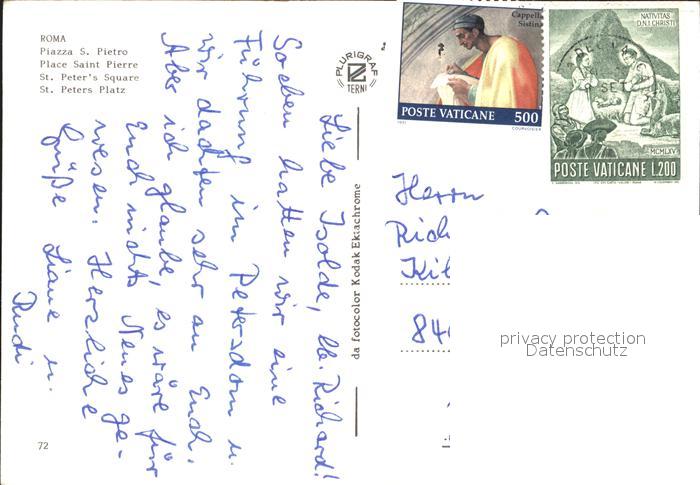 ROMA
Piazza S. Pietro
Place Saint Pierre
St. Peter's Square
St. Peters Platz
PLURIGRAF
TERNI
da fotocolor Kodak Ektachrome
72
Liebe Isolde, lb. Richard!
Soeben hatten wir eine
Führung im Petersdom u.
wir dachten sehr an Euch.
Aber ich glaube, es wäre für
Euch nichts Neues ge-
wesen. Herzliche
Grüße Liane u.
Rudi
Cappella
Sistina
POSTE VATICANE 500
COURVOISIER
NATIVITAS
D.N.I. CHRISTI
MCMLXV
POSTE VATICANE L.200
Herrn
Rich
84
privacy protection
Datenschutz